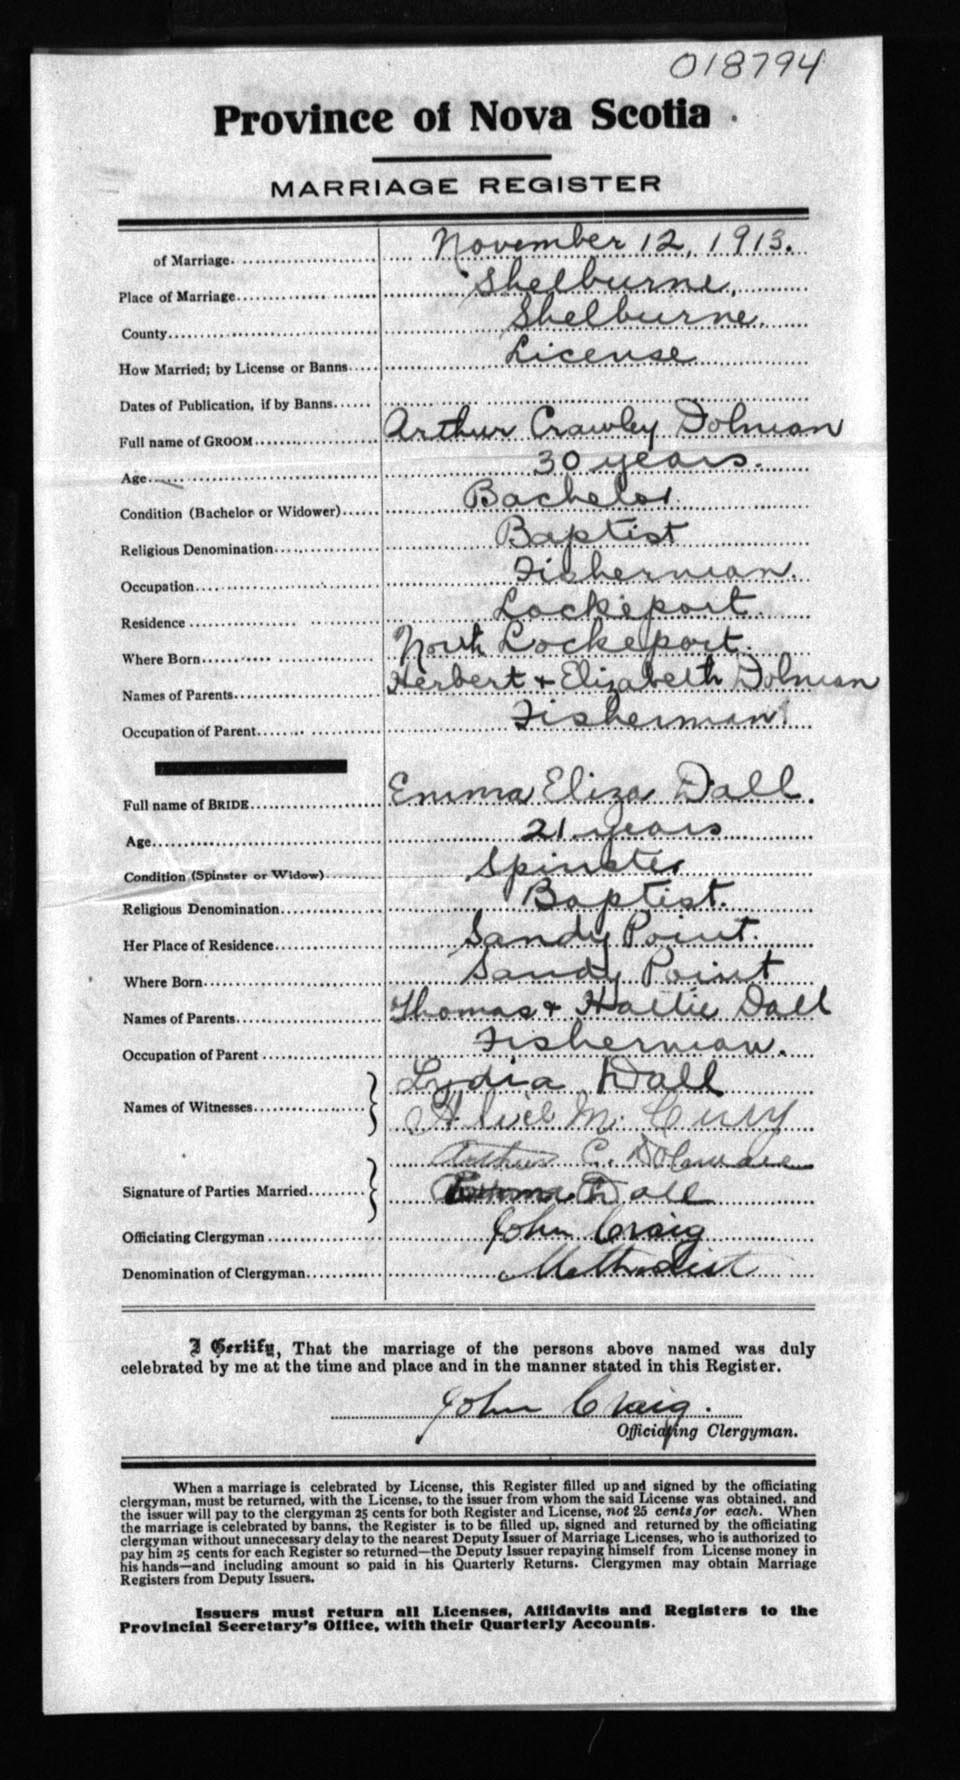 018794
Province of Nova Scotia
MARRIAGE REGISTER
of Marriage. November 12, 1913.
Place of Marriage Shelburne,
County Shelburne.
How Married; by License or Banns License
Dates of Publication, if by Banns
Full name of GROOM Arthur Crawley Dolman
Age 30 years.
Condition (Bachelor or Widower) Bachelor.
Religious Denomination Baptist
Occupation Fisherman.
Residence Lockeport.
Where Born North Lockeport.
Names of Parents Herbert + Elizabeth Dolman
Occupation of Parent Fisherman
Full name of BRIDE Emma Eliza Dall.
Age 21 years
Condition (Spinster or Widow) Spinster
Religious Denomination Baptist.
Her Place of Residence Sandy Point.
Where Born Sandy Point
Names of Parents Thomas + Hattie Dall
Occupation of Parent Fisherman.
Names of Witnesses Lydia Dall
M.
Arthur C.
Signature of Parties Married Emma Dall
Officiating Clergyman John Craig
Denomination of Clergyman Methodist
I Certify, That the marriage of the persons above named was duly
celebrated by me at the time and place and in the manner stated in this Register.
John Craig.
Officiating Clergyman.
When a marriage is celebrated by License, this Register filled up and signed by the officiating
clergyman, must be returned, with the License, to the issuer from whom the said License was obtained, and
the issuer will pay to the clergyman 25 cents for both Register and License, not 25 cents for each. When
the marriage is celebrated by banns, the Register is to be filled up, signed and returned by the officiating
clergyman without unnecessary delay to the nearest Deputy Issuer of Marriage Licenses, who is authorized to
pay him 25 cents for each Register so returned—the Deputy Issuer repaying himself from License money in
his hands—and including amount so paid in his Quarterly Returns. Clergymen may obtain Marriage
Registers from Deputy Issuers.
Issuers must return all Licenses, Affidavits and Registers to the
Provincial Secretary's Office, with their Quarterly Accounts.